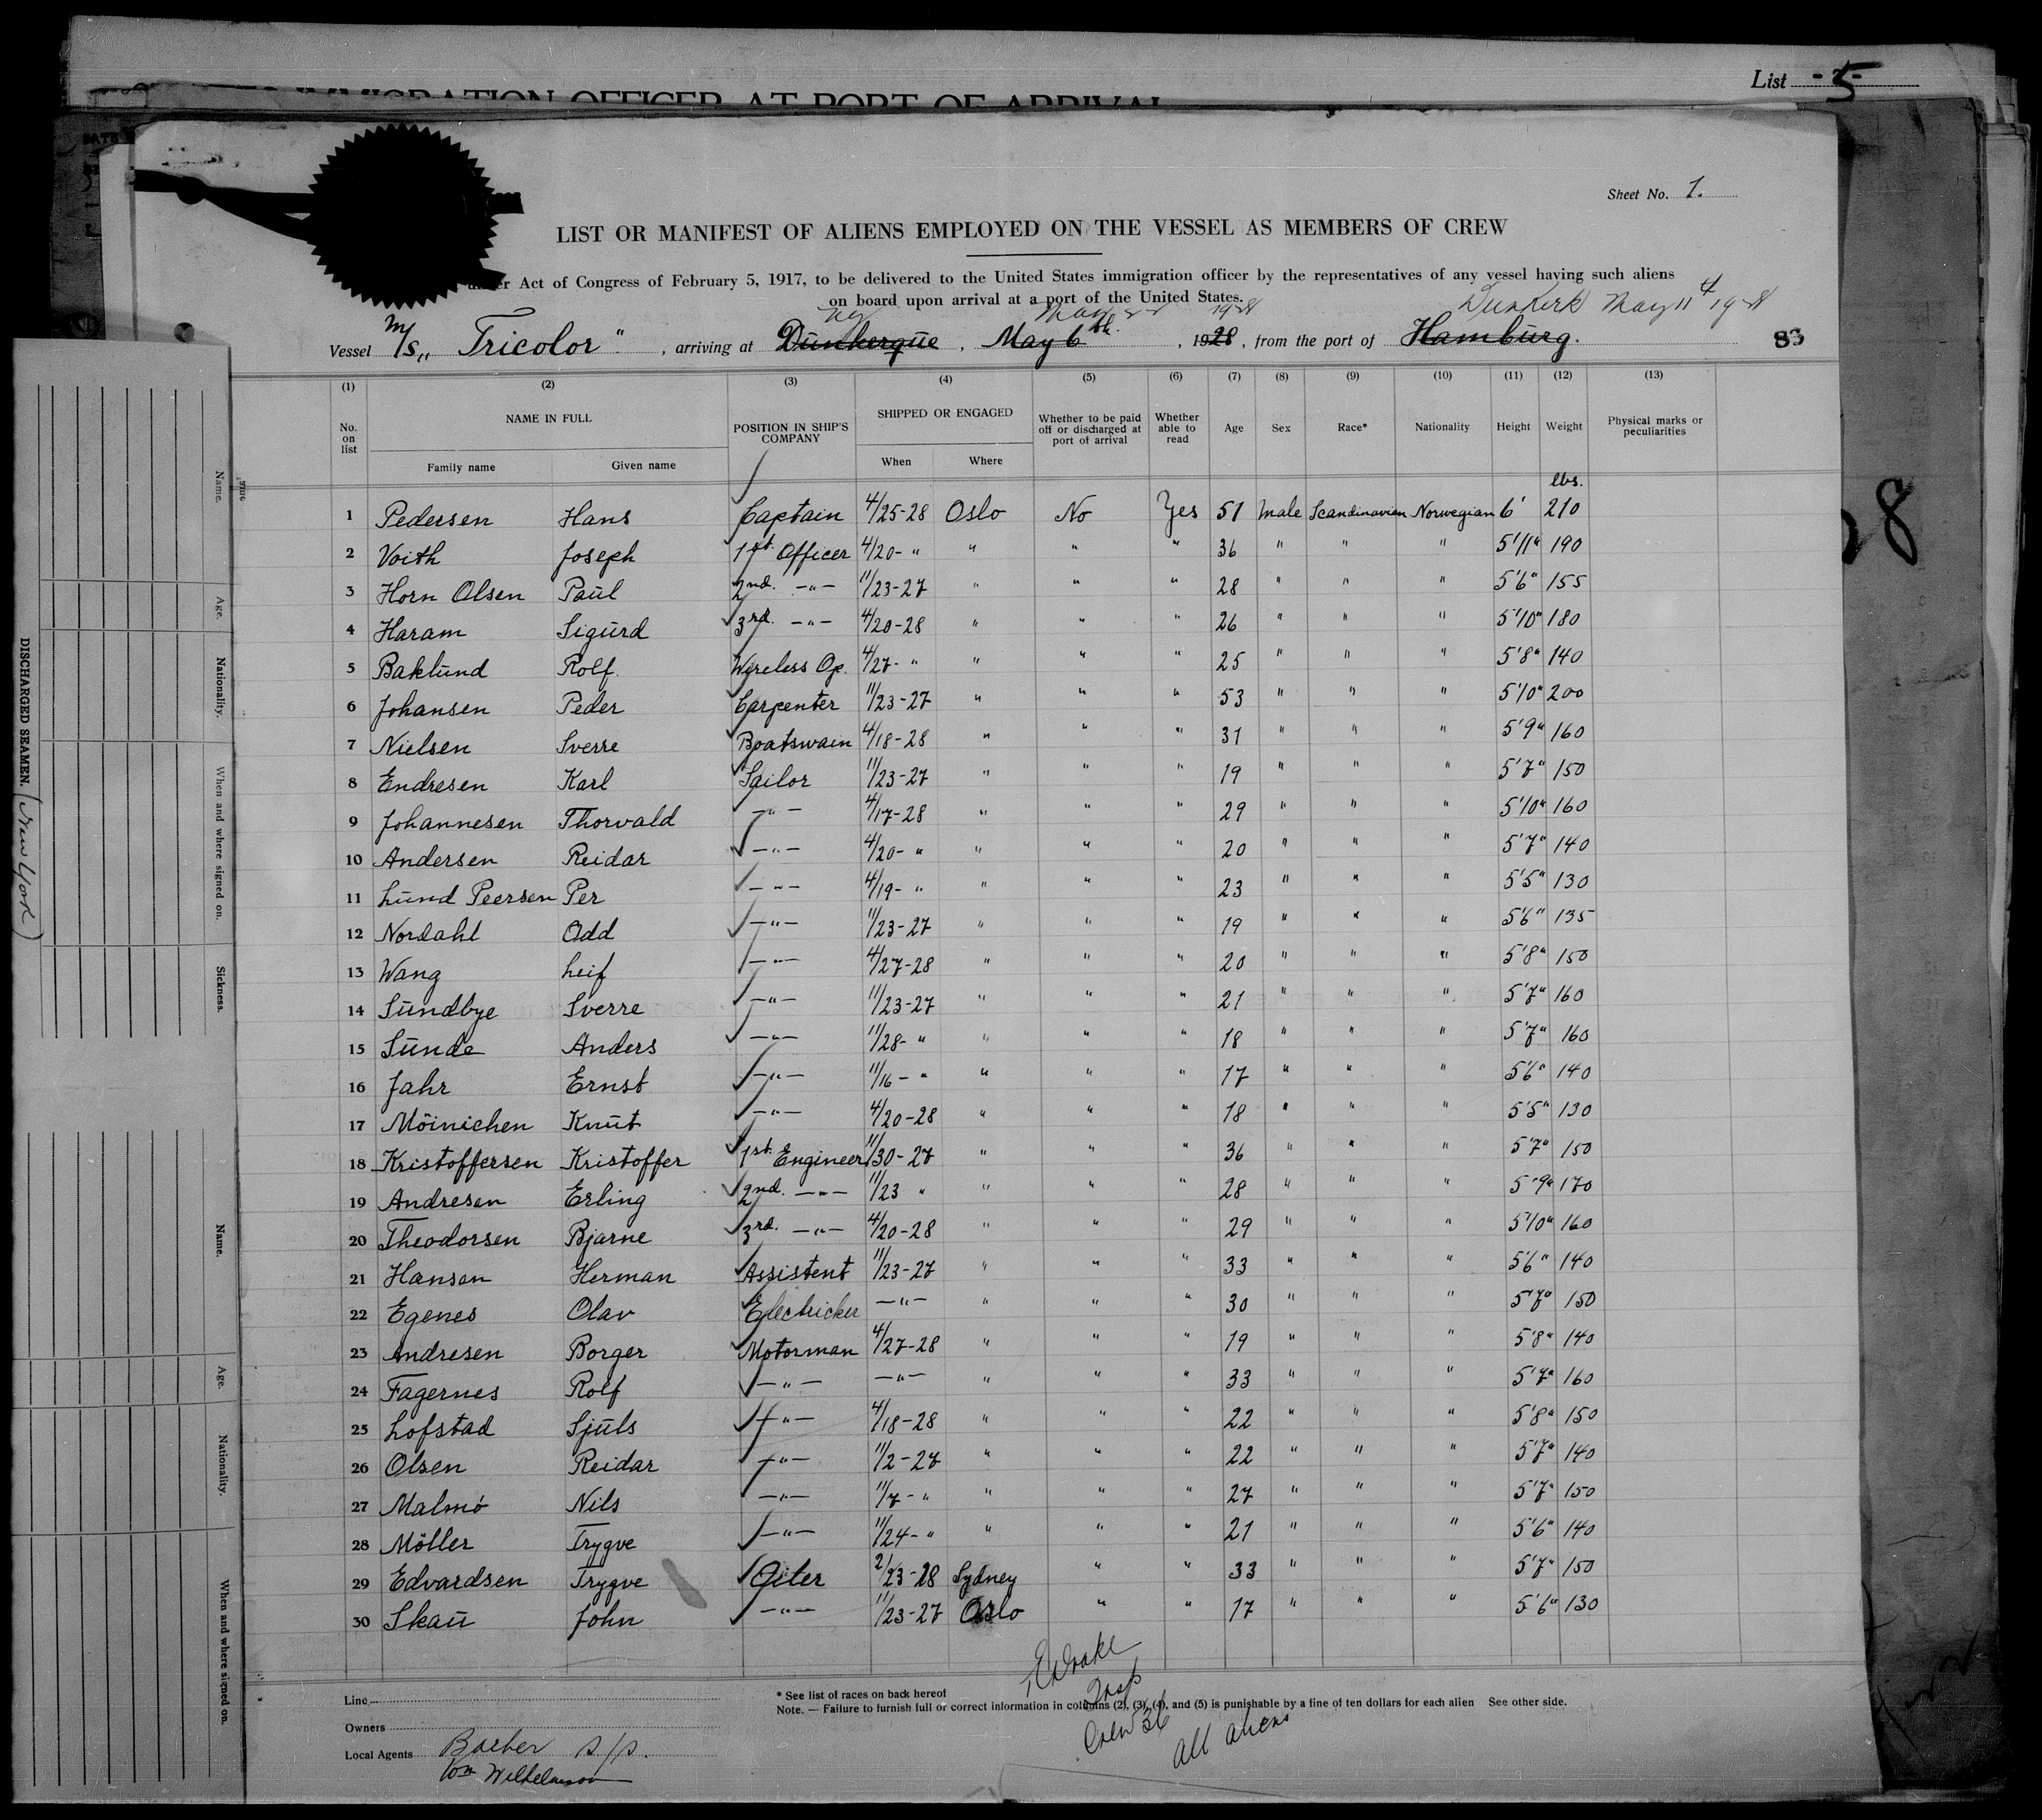 List - 5 -
IMMIGRATION OFFICER AT PORT OF ARRIVAL
Sheet No. 1.
LIST OR MANIFEST OF ALIENS EMPLOYED ON THE VESSEL AS MEMBERS OF CREW
under Act of Congress of February 5, 1917, to be delivered to the United States immigration officer by the representatives of any vessel having such aliens
on board upon arrival at a port of the United States.
NY May 22 1928 Dunkerk May 11 4 1928
Vessel M/s „ Tricolor", arriving at Dünkerqūe, May 6th, 1928, from the port of Hambūrg. 83
(1) (2) (3) (4) (5) (6) (7) (8) (9) (10) (11) (12) (13)
No. on list NAME IN FULL Family name Given name POSITION IN SHIP'S COMPANY SHIPPED OR ENGAGED When Where Whether to be paid off or discharged at port of arrival Whether able to read Age Sex Race* Nationality Height Weight Physical marks or peculiarities
lbs.
1 Pedersen Hans Captain 4/25-28 Oslo No Yes 51 Male Scandinavian Norwegian 6' 210
2 Voith Joseph 1st Officer 4/20- " " " " 36 " " " 5'11" 190
3 Horn Olsen Paūl 2nd. -"- 11/23-27 " " " 28 " " " 5'6" 155
4 Haram Sigūrd 3rd. -"- 4/20-28 " " " 26 " " " 5'10" 180
5 Baklūnd Rolf. Wireless Op. 4/27- " " " " 25 " " " 5'8" 140
6 Johansen Peder Carpenter 11/23-27 " " " 53 " " " 5'10" 200
7 Nielsen Sverre Boatswain 4/18-28 " " " 31 " " " 5'9" 160
8 Endresen Karl Sailor 11/23-27 " " " 19 " " " 5'7" 150
9 Johannesen Thorvald -"- 4/17-28 " " " 29 " " " 5'10" 160
10 Andersen Reidar -"- 4/20- " " " " 20 " " " 5'7" 140
11 Lūnd Peersen Per -"- 4/19- " " " " 23 " " " 5'5" 130
12 Nordahl Odd -"- 11/23-27 " " " 19 " " " 5'6" 135
13 Wang Leif -"- 4/27-28 " " " 20 " " " 5'8" 150
14 Sūndbye Sverre -"- 11/23-27 " " " 21 " " " 5'7" 160
15 Sūnde Anders -"- 11/28- " " " " 18 " " " 5'7" 160
16 Jahr Ernst -"- 11/16- " " " " 17 " " " 5'6" 140
17 Möinichen Knūt -"- 4/20-28 " " " 18 " " " 5'5" 130
18 Kristoffersen Kristoffer 1st. Engineer 11/30-27 " " " 36 " " " 5'7" 150
19 Andresen Erling 2nd. -"- 11/23 " " " " 28 " " " 5'9" 170
20 Theodorsen Bjarne 3rd. -"- 4/20-28 " " " 29 " " " 5'10" 160
21 Hansen Herman Assistent 11/23-27 " " " 33 " " " 5'6" 140
22 Egenes Olav Electricker -"- " " " 30 " " " 5'7" 150
23 Andresen Borger Motorman 4/27-28 " " " 19 " " " 5'8" 140
24 Fagernes Rolf -"- -"- " " " 33 " " " 5'7" 160
25 Lofstad Sjūls -"- 4/18-28 " " " 22 " " " 5'8" 150
26 Olsen Reidar -"- 11/2-27 " " " 22 " " " 5'7" 140
27 Malmö Nils -"- 11/7- " " " " 27 " " " 5'7" 150
28 Möller Trygve -"- 11/24- " " " " 21 " " " 5'6" 140
29 Edvardsen Trygve Oiler 2/23-28 Sydney " " 33 " " " 5'7" 150
30 Skaū John -"- 11/23-27 Oslo " " 17 " " " 5'6" 130
Line
Owners
Local Agents Barber S/S.
Wm Wilhelmson
* See list of races on back hereof
Note. — Failure to furnish full or correct information in columns (2), (3), (4), and (5) is punishable by a fine of ten dollars for each alien See other side.
Drake
Insp
Crew 36
all aliens
DISCHARGED SEAMEN. (New York)
Name.
Age.
Nationality.
When and where signed on.
Sickness.
Name.
Age.
Nationality.
When and where signed on.